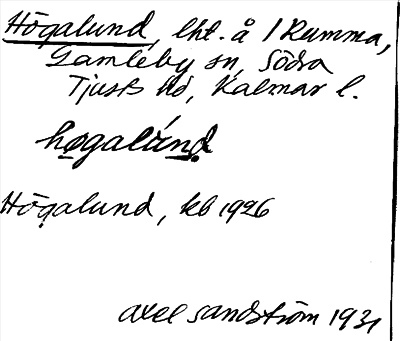 Högalund, lht. å 1 Rumma,
Gamleby sn, Södra
Tjusts hd, Kalmar l.
høgalúnd
Högalund, kb 1926
Axel Sandström 1931